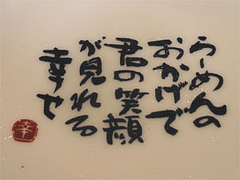 らーめんの
おかげで
君の笑顔
が見れる
幸せ
幸